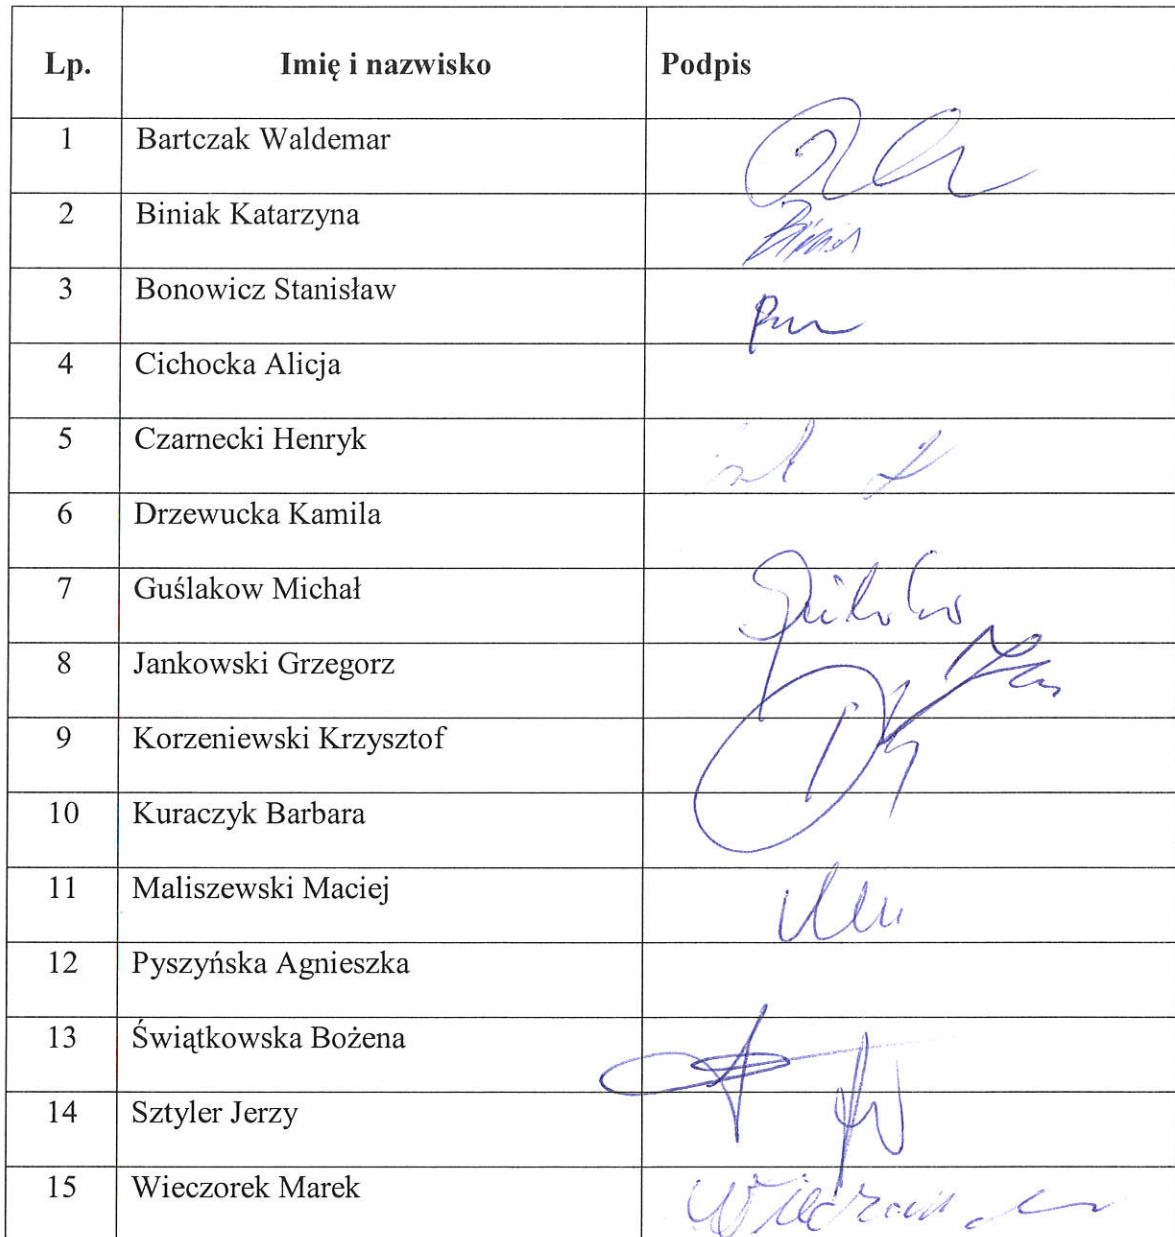 Lp. Imię i nazwisko Podpis
1 Bartczak Waldemar
2 Biniak Katarzyna
3 Bonowicz Stanisław
4 Cichocka Alicja
5 Czarnecki Henryk
6 Drzewucka Kamila
7 Guślakow Michał
8 Jankowski Grzegorz
9 Korzeniewski Krzysztof
10 Kuraczyk Barbara
11 Maliszewski Maciej
12 Pyszyńska Agnieszka
13 Świątkowska Bożena
14 Sztyler Jerzy
15 Wieczorek Marek